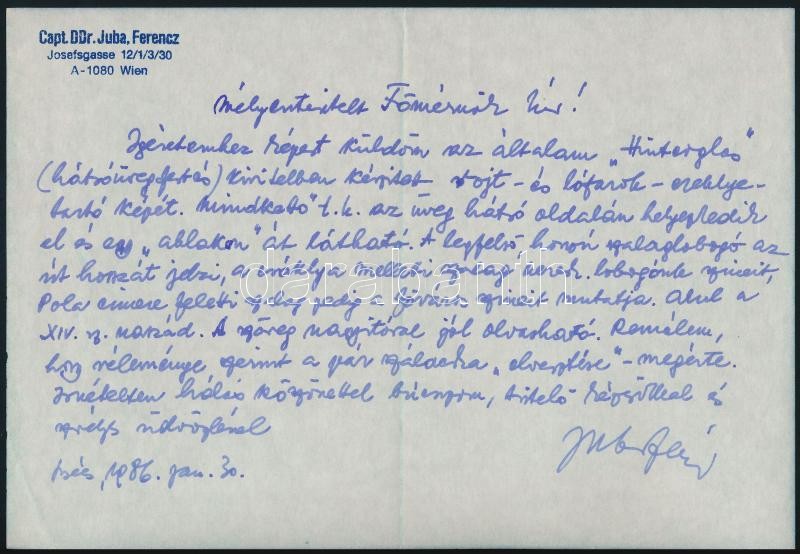 Capt. DDr. Juba, Ferencz
Josefsgasse 12/1/3/30
A-1080 Wien
Mélyentisztelt Főmérnök Úr!
Szeretemhez képest küldöm az általam „Hinterglas"
(hátsóüvegfestés) kivitelben készített rojt- és lófarok- ereklye-
tartó képét. Mindkettő t.k. az üveg hátsó oldalán helyezkedik
el és egy „ablakon" át látható. A legfelső horon szalaglobogó az
út hosszát jelzi, a melletti szalag keresk. lobogónk színeit,
Pola címere feletti szalag pedig a színeit mutatja. Alul a
XIV. sz. naszád. A szöveg nagyítóval jól olvasható. Remélem,
hogy véleménye szerint a pár szálacska „elvesztése" - megérte.
Ismételten hálás köszönettel búcsúzom, tisztelő kézsókkal és
szívélyes üdvözléssel
Bécs, 1986. jan. 30.
darabanth